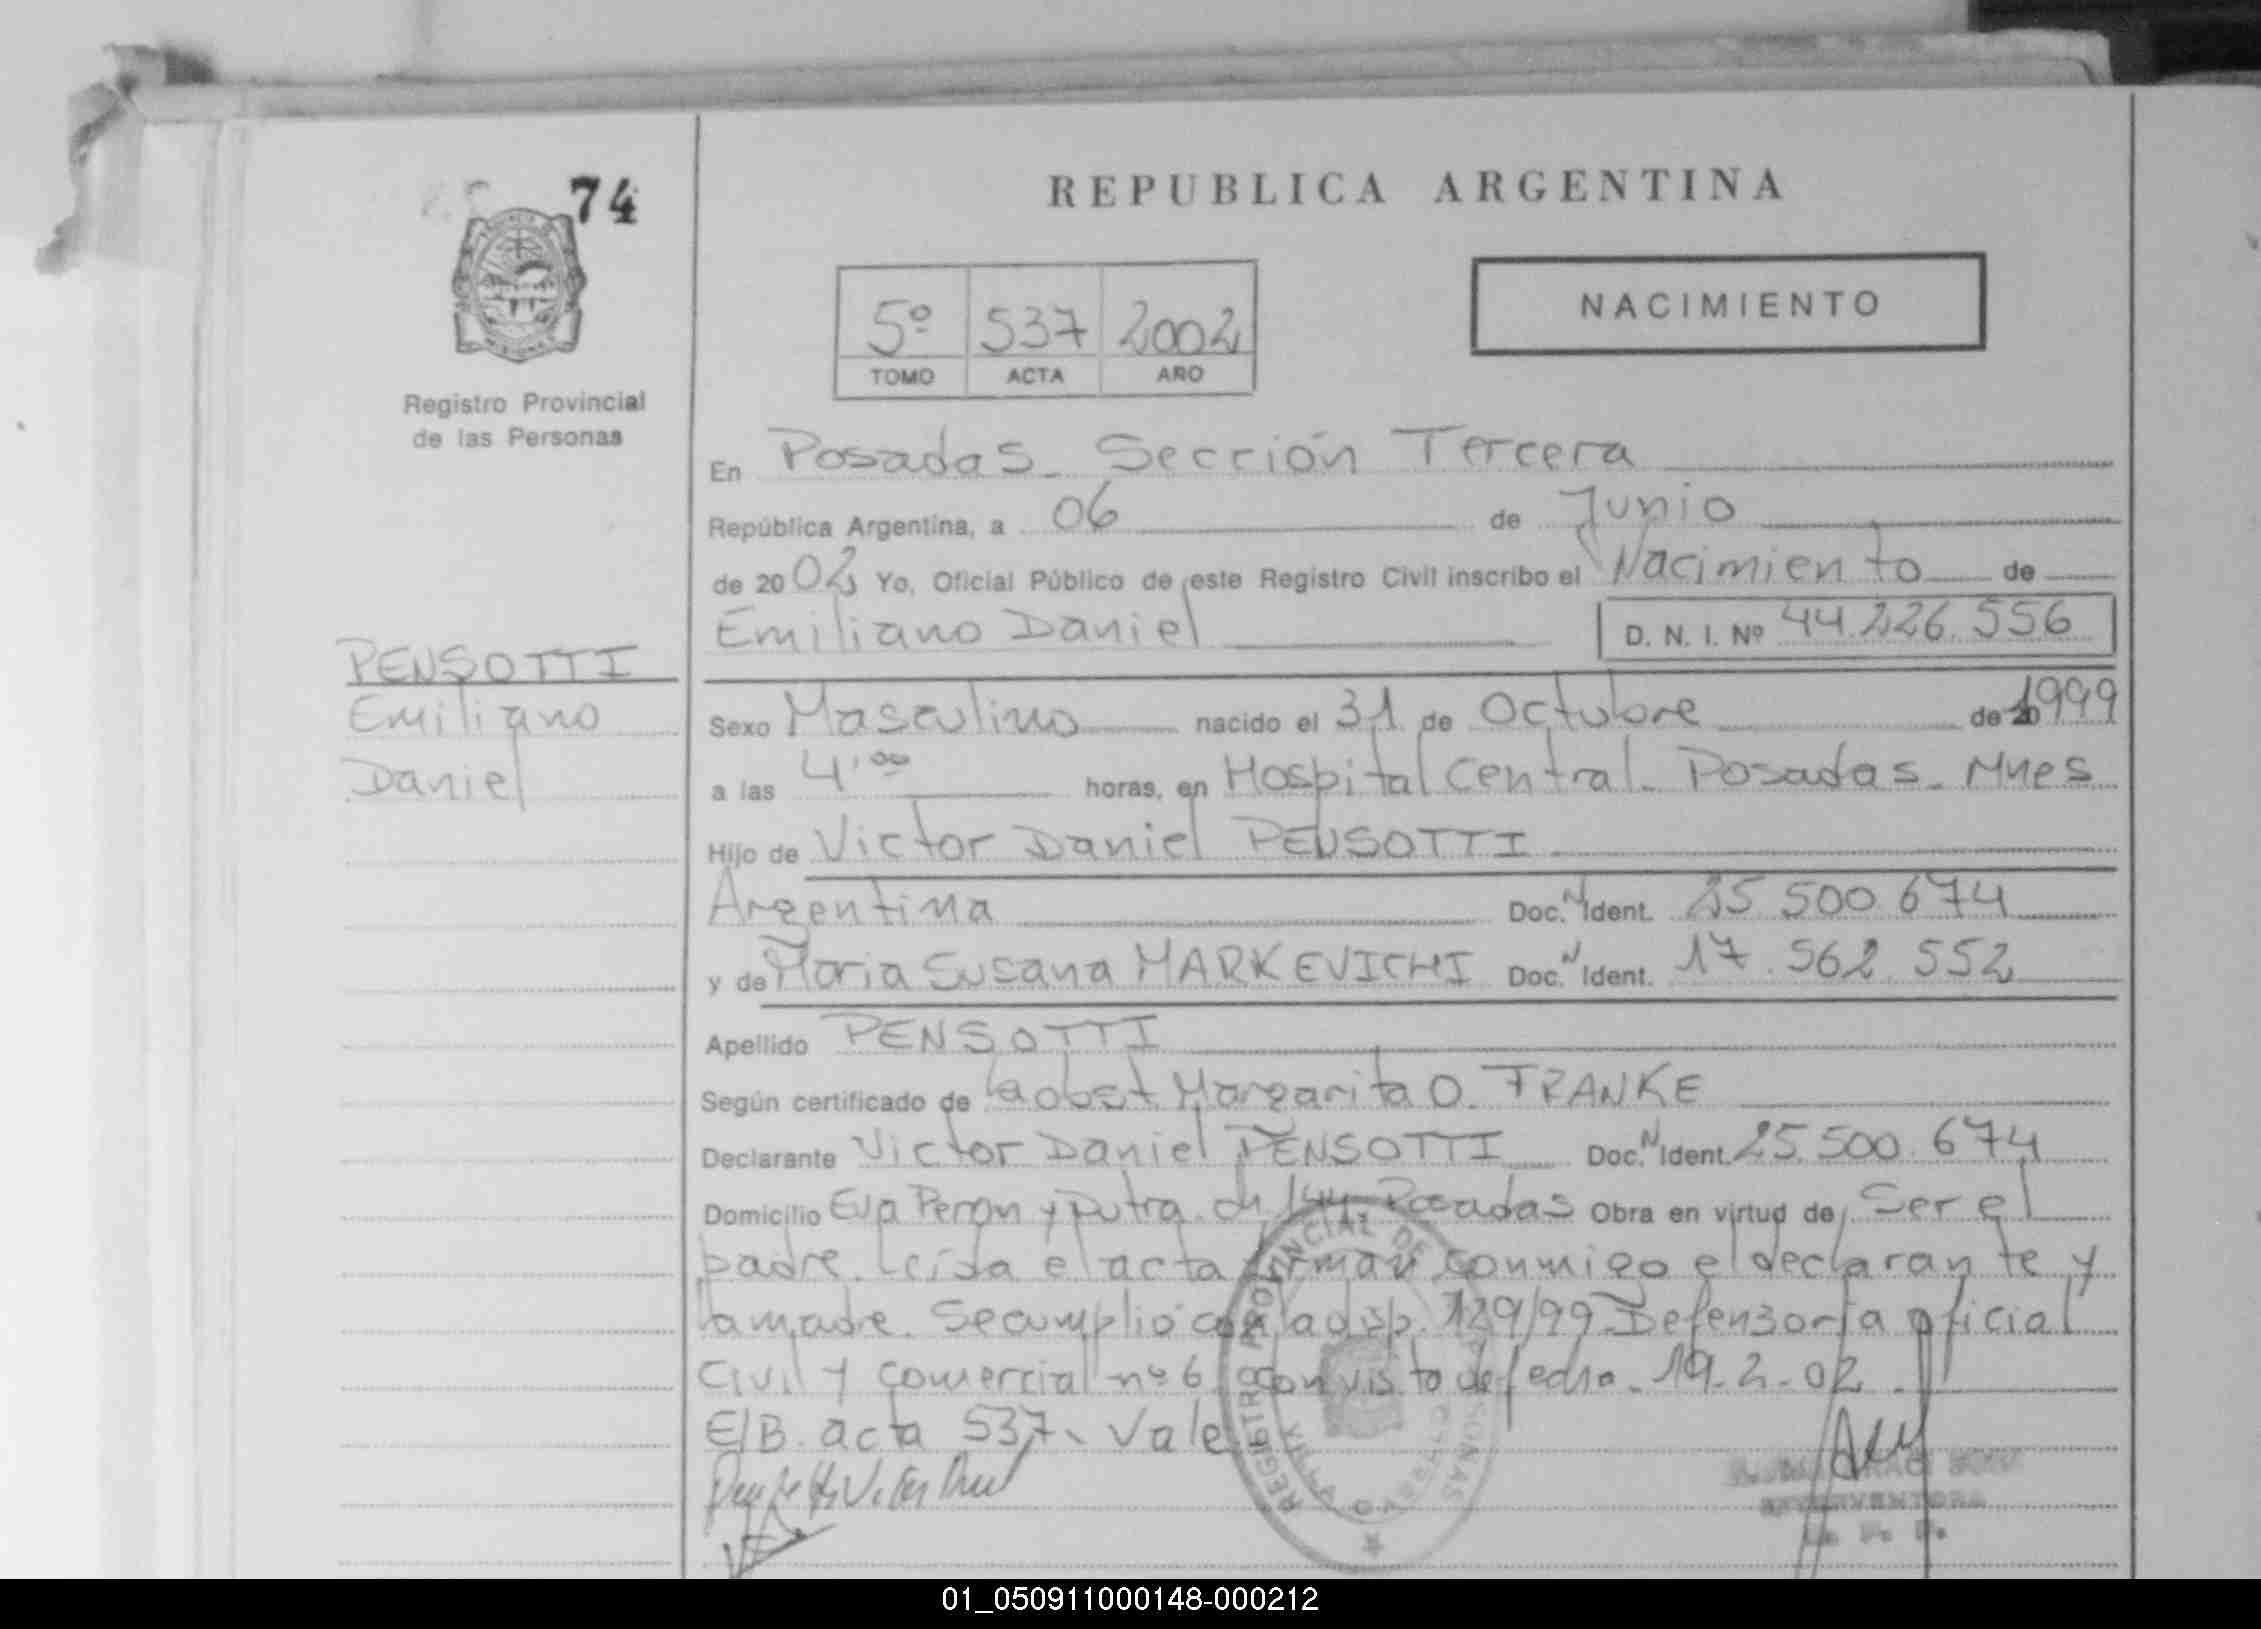 74
REPUBLICA ARGENTINA
5º 537 2002
TOMO ACTA AÑO
NACIMIENTO
Registro Provincial
de las Personas
En Posadas_ Sección Tercera
República Argentina, a 06 de Junio
de 2002 Yo, Oficial Público de este Registro Civil inscribo el Nacimiento de
Emiliano Daniel D. N. I. Nº 44.226.556
PENSOTTI
Emiliano
Daniel
Sexo Masculino nacido el 31 de Octubre de 1999
a las 4'00 horas, en Hospital Central_ Posadas_ Mnes
Hijo de Victor Daniel PENSOTTI
Argentina Doc. N Ident. 25.500.674
y de Maria Susana MARKEVICHI Doc. N Ident. 17.562.552
Apellido PENSOTTI
Según certificado de la obst. Margarita O. FRANKE
Declarante Victor Daniel PENSOTTI Doc. N Ident. 25.500.674
Domicilio Eva Peron y Dutra. ch 144 Posadas Obra en virtud de Ser el
padre. Leída el acta firman conmigo el declarante y
la madre. Se cumplió con la disp. 129/99 Defensoría oficial
Civil y Comercial nº 6 con visto de fecha 19-2-02
E/B. acta 537. Vale
REGISTRO PROVINCIAL DE PERSONAS
01_050911000148-000212